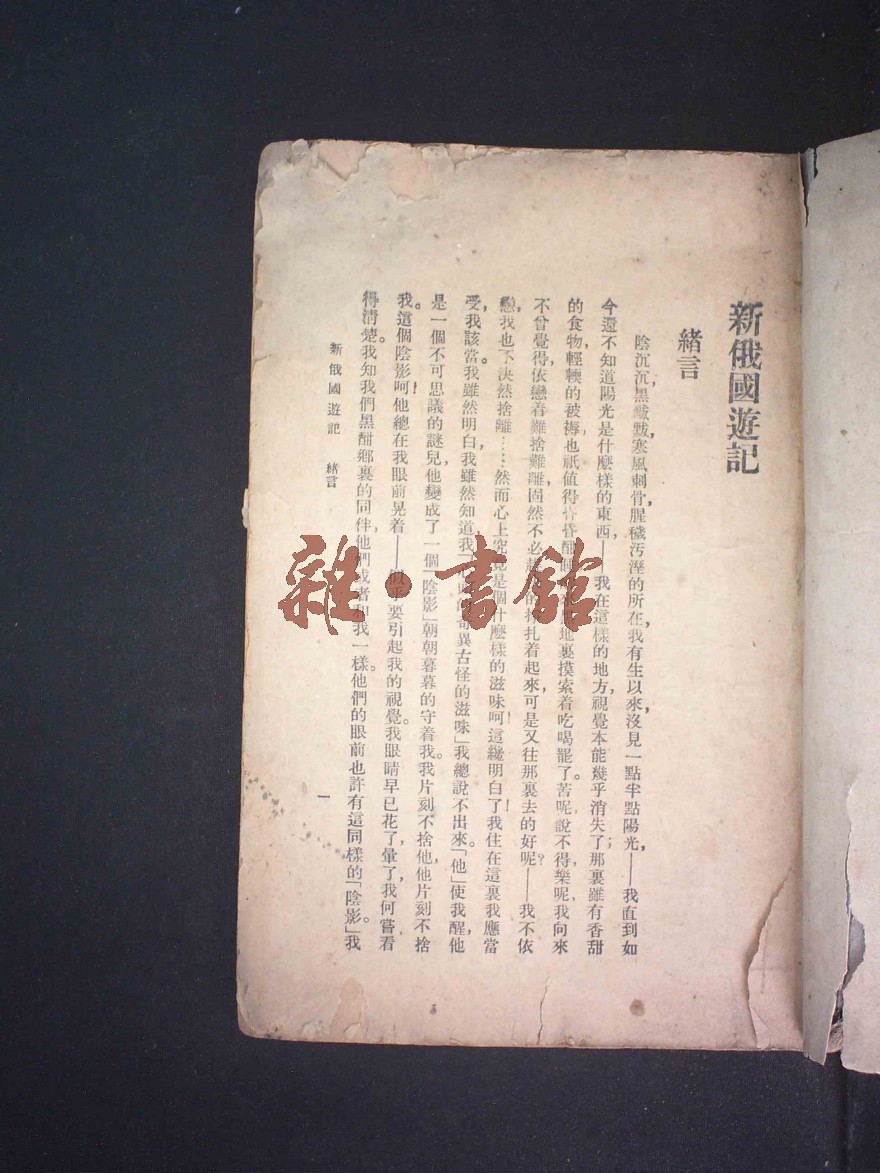 新俄國遊記
緒言
陰沉沉，黑黢黢，寒風刺骨，腥穢汚溼的所在，我有生以來，沒見一點半點陽光，——我直到如
今還不知道陽光是什麼樣的東西，——我在這樣的地方，視覺本能幾乎消失了；那裏雖有香甜
的食物，輕軟的被褥，也祇值得昏昏酣睡，地裏摸索着吃喝罷了。苦呢，說不得，樂呢，我向來
不曾覺得，依戀着難捨難離，固然不必，的掙扎着起來，可是又往那裏去的好呢？——我不依
戀，我也不決然捨離……然而心上究竟是個什麼樣的滋味呵！這纔明白了！我住在這裏我應當
受，我該當。我雖然明白，我雖然知道，我奇異古怪的滋味」我總說不出來。「他」使我醒，他
是一個不可思議的謎兒，他變成了一個「陰影」朝朝暮暮的守着我。我片刻不捨他，他片刻不捨
我。這個陰影呵！他總在我眼前晃着——似乎要引起我的視覺。我眼睛早已花了，暈了，我何嘗看
得清楚。我知我們黑酣鄉裏的同伴，他們或者和我一樣。他們的眼前也許有這同樣的「陰影」。我
新俄國遊記　緒言
一
雜·書館